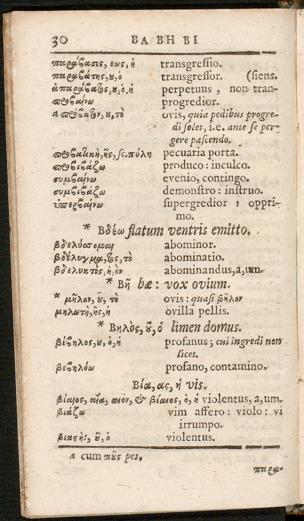 30 ΒΑ ΒΗ ΒΙ
παράβασις, εως, ἡ transgressio.
παραβάτης, ου, ὁ transgressor. (siens.
ἀπαράβατος, ου, ὁ, ἡ perpetuus, non tran-
προβαίνω progredior.
a πρόβατον, ου, τὸ ovis, quia pedibus progre-
di solet, i.e. ante se per-
gere pascendo.
προβατικὴ, ῆς, sc. πύλη pecuaria porta.
προβιβάζω produco: inculco.
συμβαίνω evenio, contingo.
συμβιβάζω demonstro: instruo.
ὑπερβαίνω supergredior: oppri-
mo.
* Βδέω flatum ventris emitto.
βδελύσσομαι abominor.
βδέλυγμα, ατος, τὸ abominatio.
βδελυκτὸς, ἡ, ὸν abominandus, a, um.
* Βῆ bæ: vox ovium.
* μῆλον, ου, τὸ ovis: quasi βῆλον
μηλωτὴ, ῆς, ἡ ovilla pellis.
* Βηλὸς, οῦ, ὁ limen domus.
βέβηλος, ου, ὁ, ἡ profanus; cui ingredi non
licet.
βεβηλόω profano, contamino.
Βία, ας, ἡ vis.
βίαιος, αία, αιον, & βίαιος, ὁ, ἡ violentus, a, um.
βιάζω vim affero: violo: vi
irrumpo.
βιαστὴς, οῦ, ὁ violentus.
a cum πρὸς pes.
παρα-